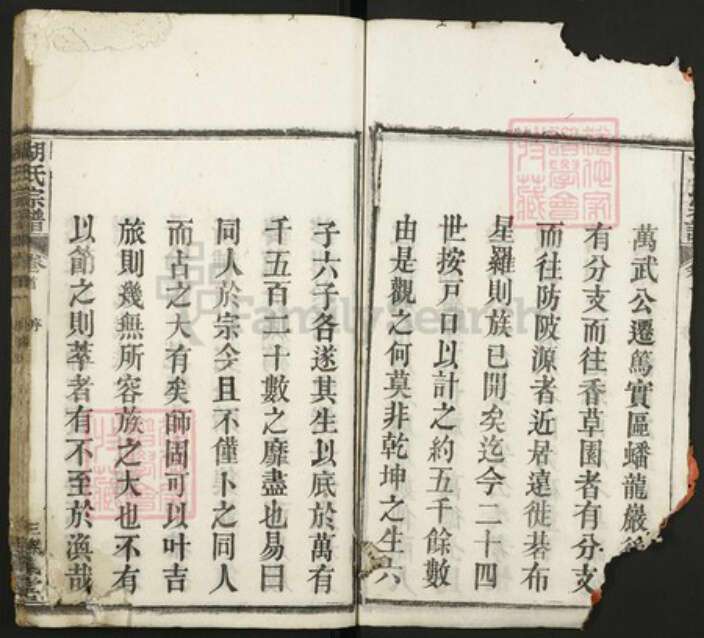 萬武公遷篤實區蟠龍巖
有分支而往香草園者有分支
而往防陂源者近居遠徙碁布
星羅則族已開矣迄今二十四
世按戸口以計之約五千餘數
由是觀之何莫非乾坤之生六
子六子各遂其生以底於萬有
千五百二十數之靡盡也易曰
同人於宗今且不僅卜之同人
而占之大有矣師固可以叶吉
旅則幾無所容族之大也不有
以節之則萃者有不至於渙哉
胡氏宗譜
卷首
序
FamilySearch